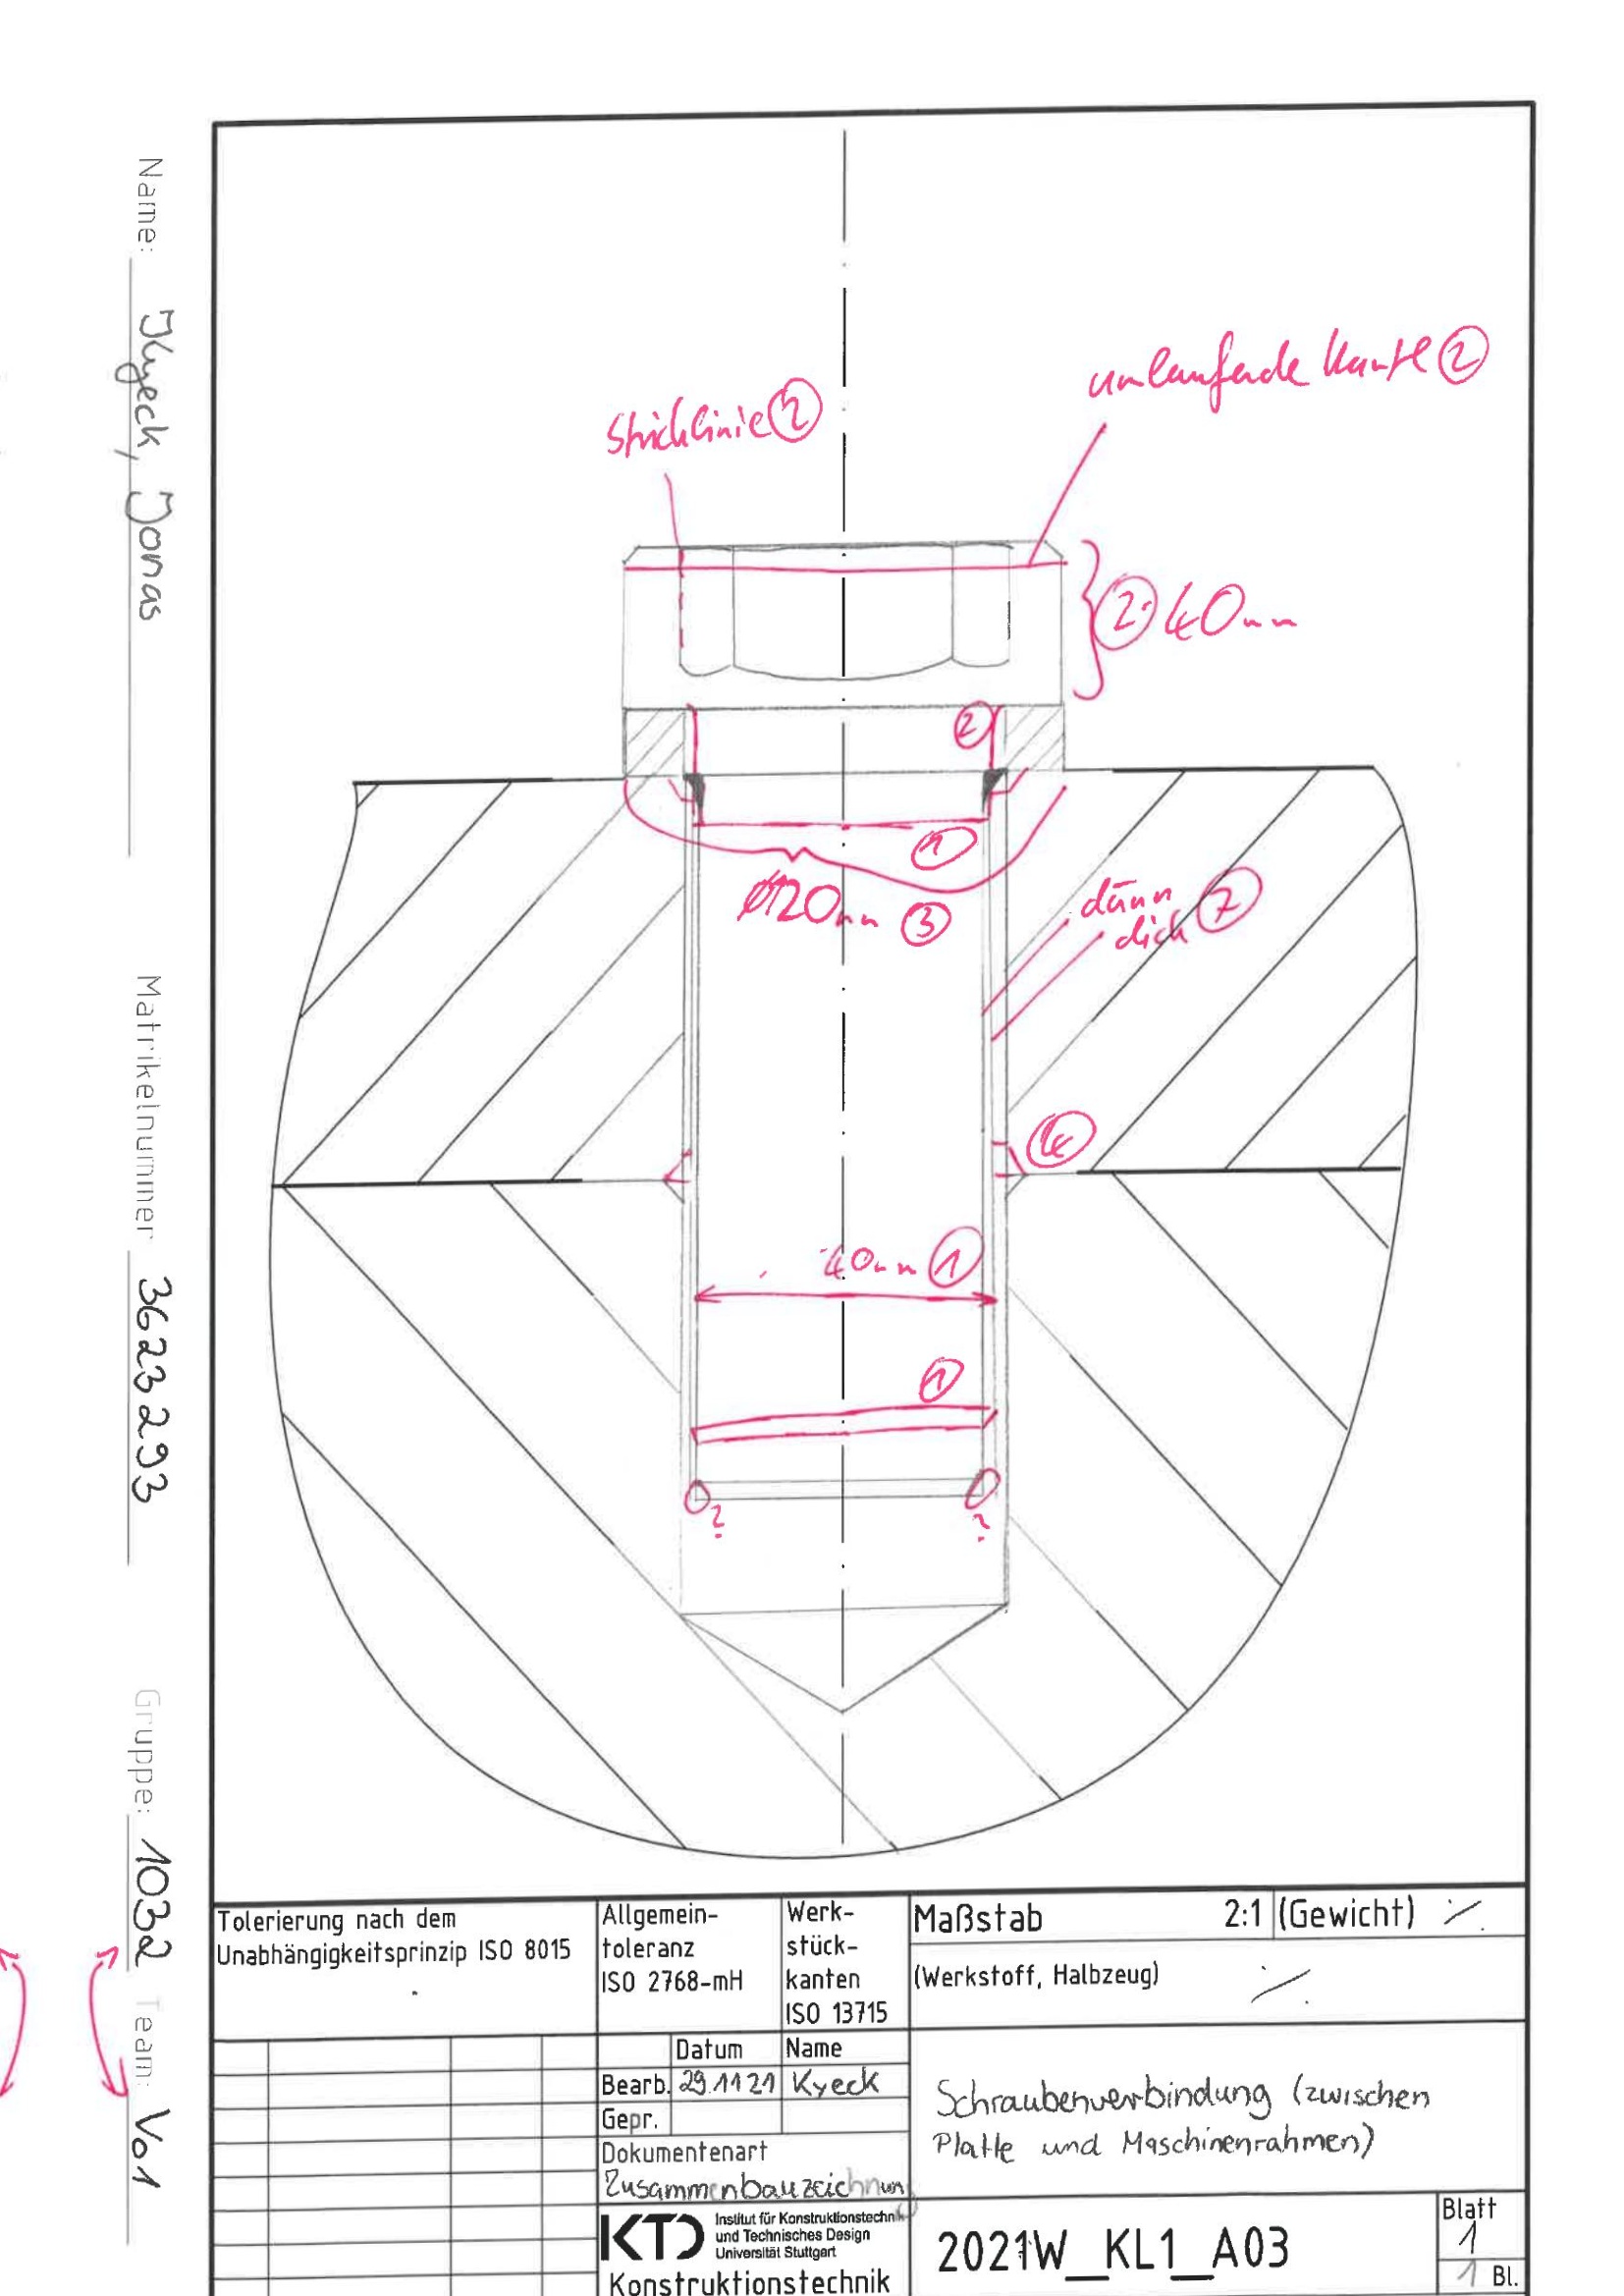 Name: Kyeck, Jonas
Matrikelnummer 3623293
Gruppe: 1032 Team: Vo1
umlaufende Kante 2
Strichlinie 2
2 40mm
2
1
Ø120mm 3
dünn
dick 7
4
40mm 1
1
?
?
Tolerierung nach dem
Unabhängigkeitsprinzip ISO 8015
Allgemein-
toleranz
ISO 2768-mH
Werk-
stück-
kanten
ISO 13715
Maßstab 2:1 (Gewicht) ./.
(Werkstoff, Halbzeug) ./.
Datum Name
Bearb. 29.11.21 Kyeck
Gepr.
Dokumentenart
Zusammenbauzeichnung
Schraubenverbindung (zwischen
Platte und Maschinenrahmen)
KTD Institut für Konstruktionstechnik
und Technisches Design
Universität Stuttgart
Konstruktionstechnik
2021W_KL1_A03
Blatt
1
1 Bl.